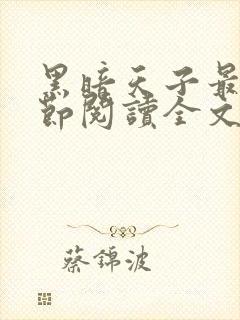 黑暗天子最
節閱讀全文
蔡錦波